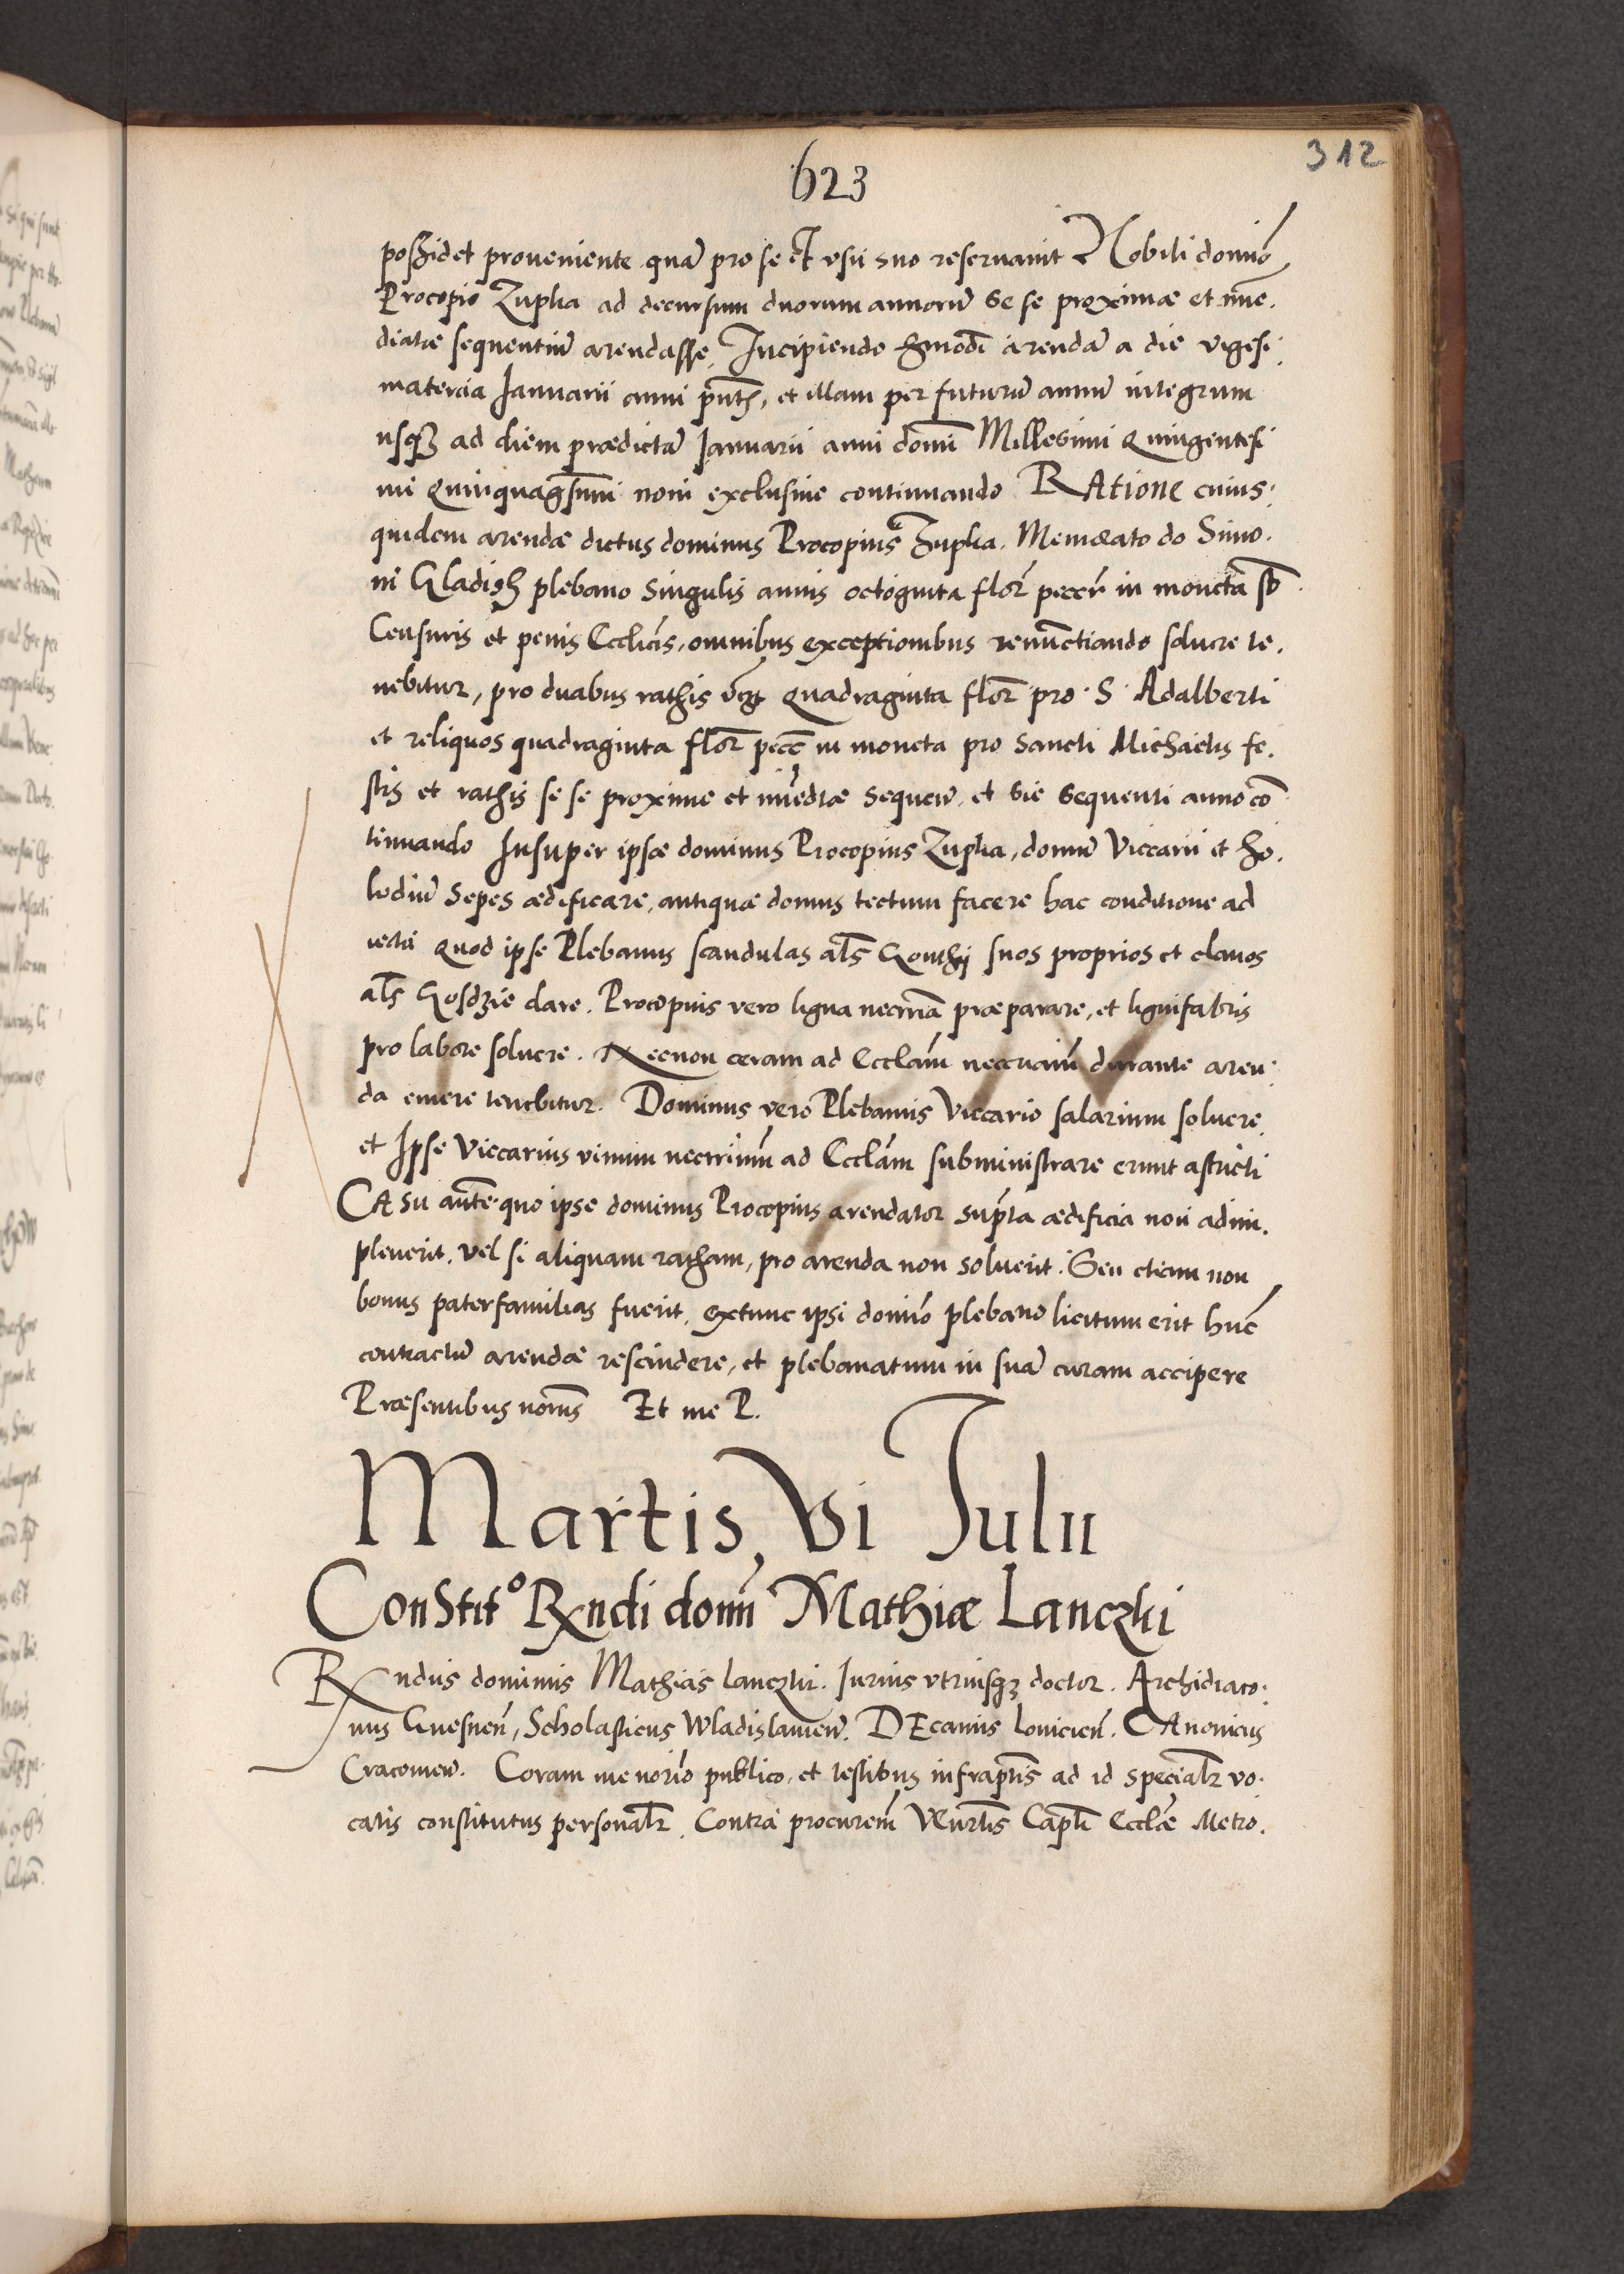 312
623
possidet proveniente quā pro se et usu suo reservavit Nobili domīo
Procopio Zupka ad decursum duorum annorū se se proximæ et īme.
diatæ sequentiū arendasse, Incipiendo hmodī arendā a die vigesi
matercia Januarii anni pn̄tis, et illam per futurū annū integrum
usq3 ad diem prædictā Januarii anni domī Millesimi Quingentesi
mi Quinquagesīmi noni exclusive continuando RAtione cuius.
quidem arendæ dictus dominus Procopius Zupka. Memorato do Simo.
ni Gladish plebano singulis annis octoginta flor̄ pecc̄ in moneta sb̄
Censuris et penis Ecclīcis, omnibus exceptionibus renūctiando solvere te.
nebitur, pro duabus rathis vz̄ quadraginta flor̄ pro S Adalberti
et reliquos quadraginta flor̄ pecc̄ in moneta pro Sancti Michaelis fe.
stis et rathis se se proxime et īmedtæ sequen̄. et sic sequenti anno cō
tinuando Insuper ipsæ dominus Procopius Zupka, domū Viccarii et ho.
lodiū sepes ædificare, antiquæ domus tectum facere hac conditione ad
iecta quod ipse Plebanus scandulas al̄s Gonthij suos proprios et clavos
al̄s Gosdzie dare. Procopius vero ligna necrīa præparare, et lignifabris
pro labore solvere. Necnon ceram ad Ecclām neccariām durante aren
da emere tenebitur. Dominus vero Plebanus Viccario salarium solvere
et Ipse Viccarius vinum necrīum ad Ecclām subministrare erunt astricti
CAsu aūte quo ipse dominus Procopius arendator supr̄ta ædificia non adim.
pleverit. vel si aliquam ratham, pro arenda non solverit. Seu etiam non
bonus paterfamilias fuerit, extunc ipsi domīo plebano licitum erit hūc
contractū arendæ rescindere, et plebanatum in suā curam accipere
Præsentibus nōrīs Et me P.
Martis, vi Julii
Constit° Rndi domī Mathiæ Lanczki
Rndus dominus Mathias Lanczki. Juriūs utriusq3 doctor. Archidiaco.
nus Gnesnēn, Scholasticus Wladislavien̄. DEcanus Loviciēn. CAnonicus
Cracovien̄. Coram me norīo publico, et testibus infrap̄tis ad id speciāłr vo.
catis constitutus personāłr. Contra procurēm Vēnrlis Cap̄li Ecclīæ Metro.